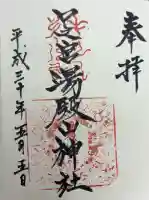 奉拝
足宮湯殿山神社
平成三十年五月五日